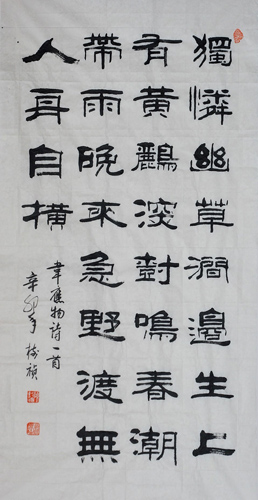 獨憐幽草澗邊生上
有黃鸝深對鳴春潮
帶雨晚來急野渡無
人舟自橫
韋應物詩一首
辛卯年